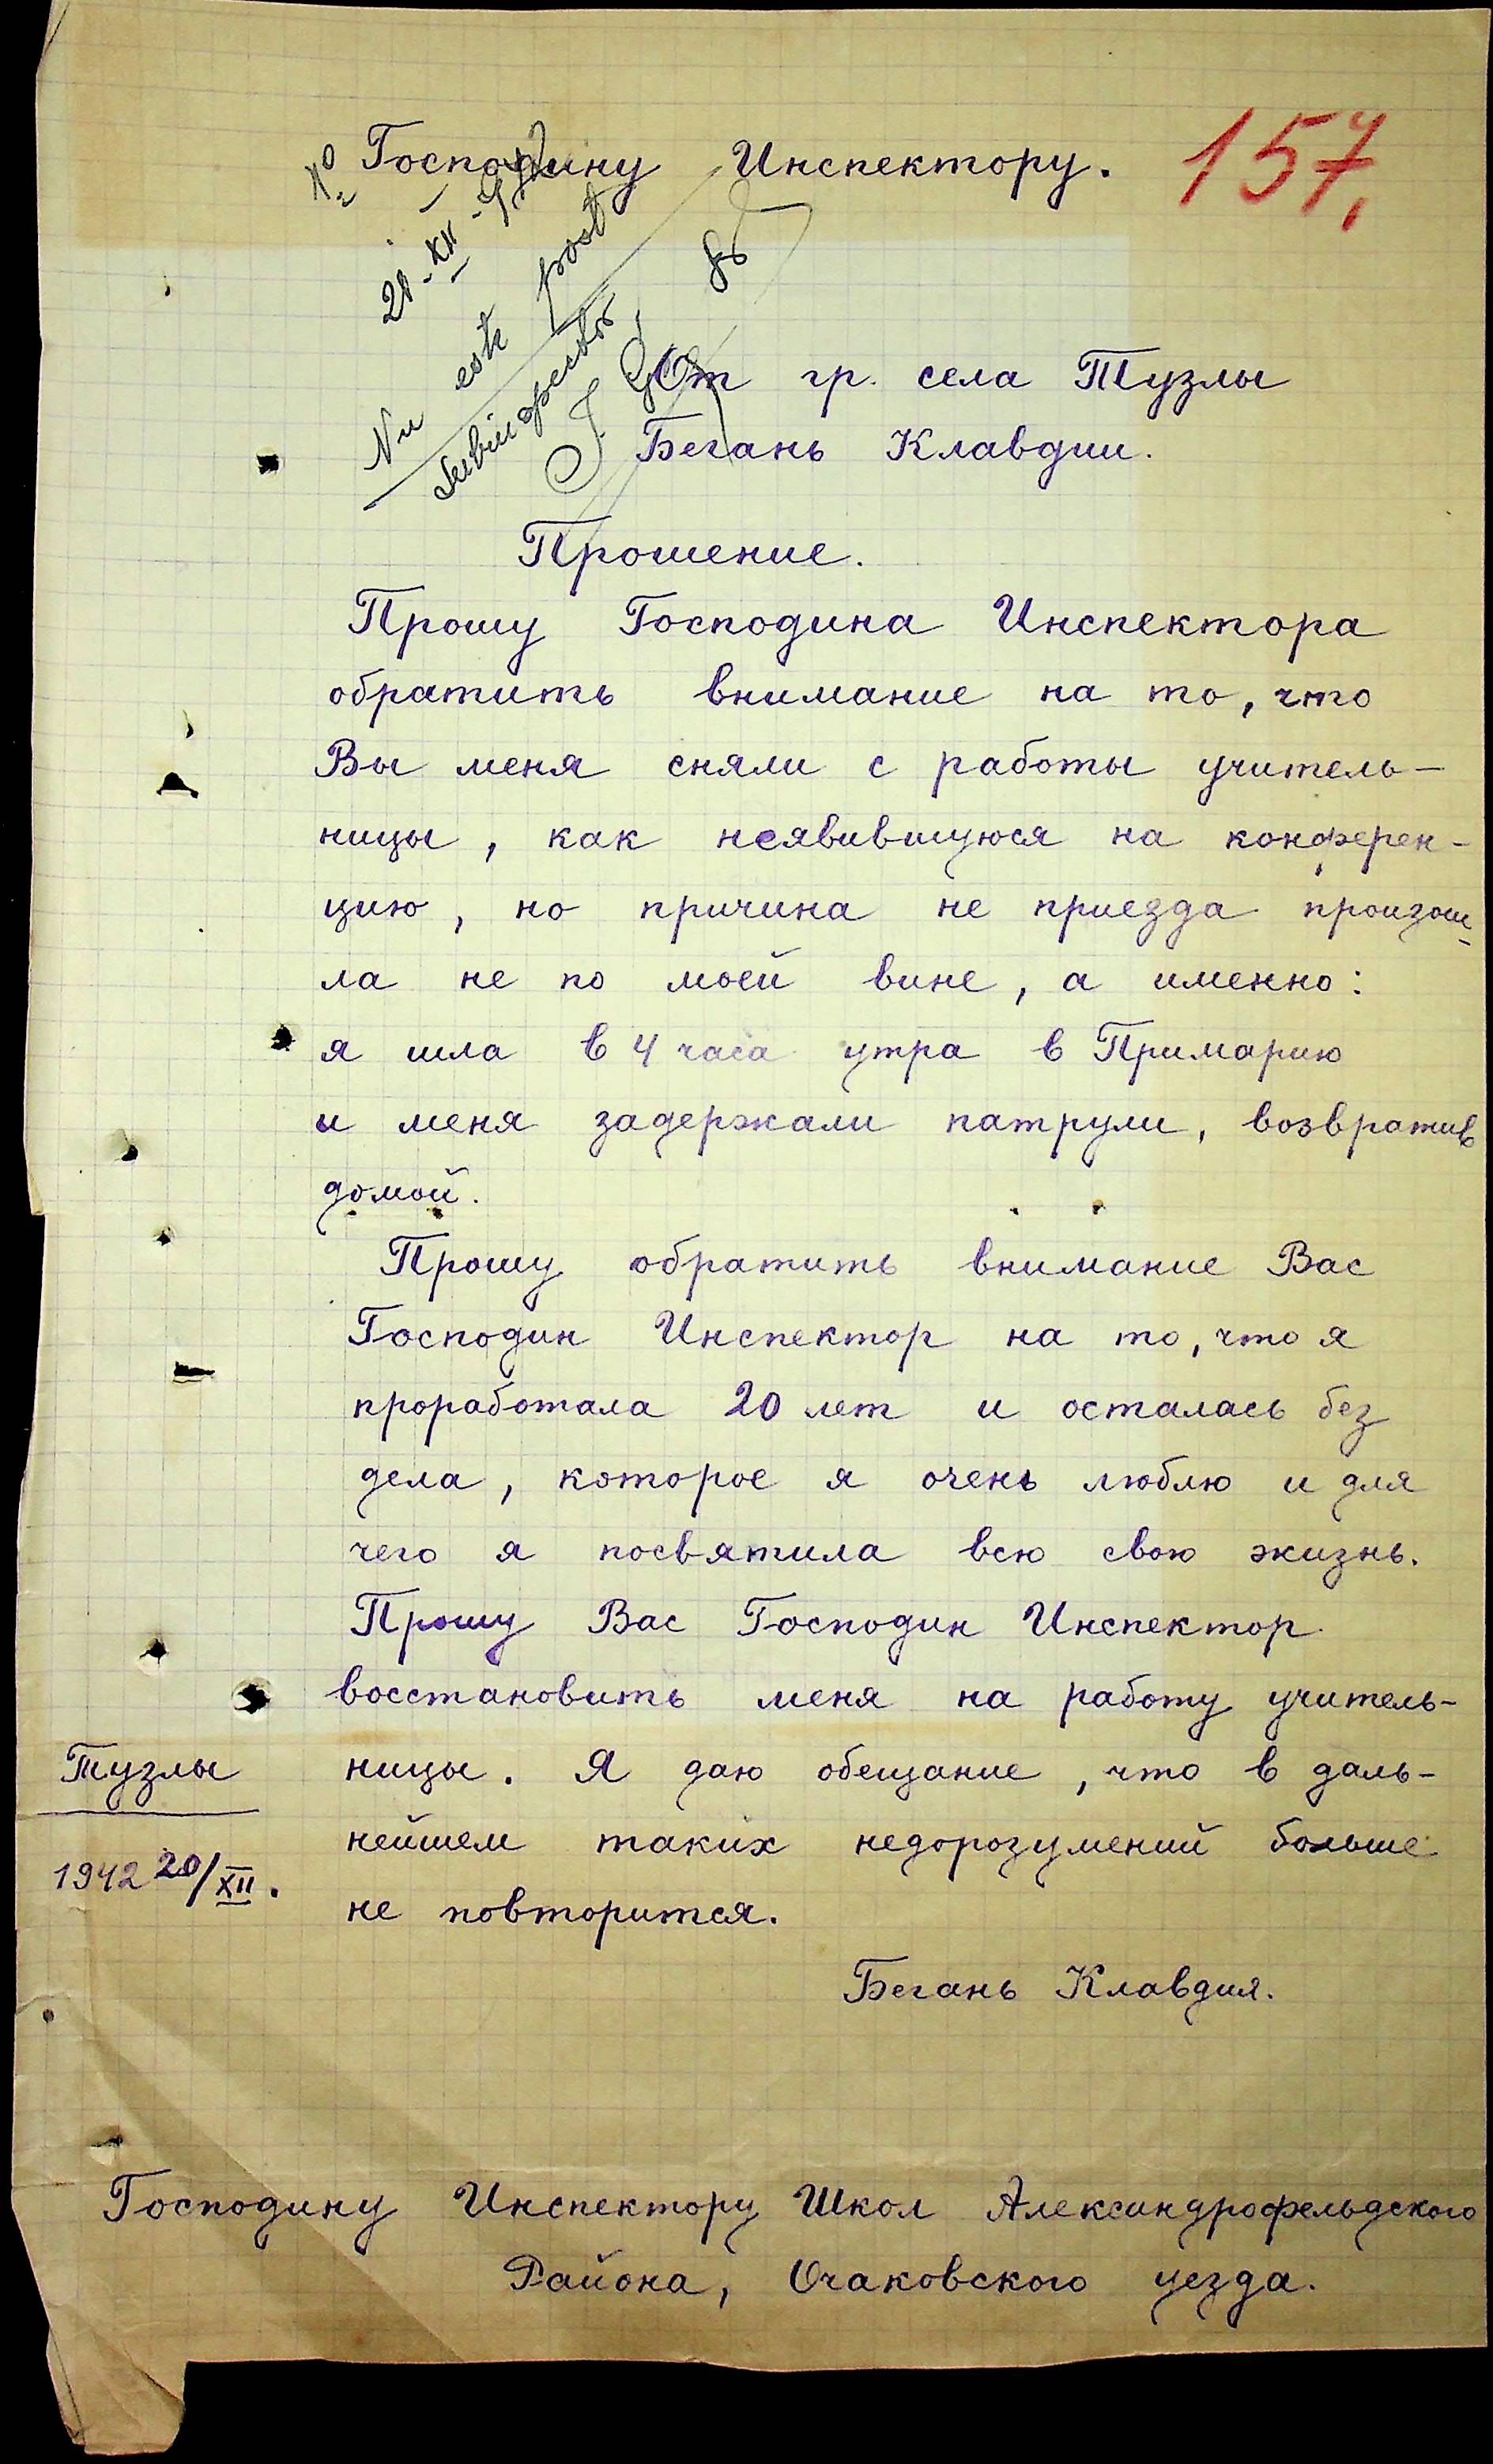 Господину Инспектору.
157.
№
21-XII-942
Nu este post
Subinspector,
От гр. села Тузлы
Бегань Клавдии.
Прошение.
Прошу Господина Инспектора
обратить внимание на то, что
Вы меня сняли с работы учитель-
ницы, как неявившуюся на конферен-
цию, но причина не приезда произош-
ла не по моей вине, а именно:
я шла в 4 часа утра в Примарию
и меня задержали патрули, возвратив
домой.
Прошу обратить внимание Вас
Господин Инспектор на то, что я
проработала 20 лет и осталась без
дела, которое я очень люблю и для
чего я посвятила всю свою жизнь.
Прошу Вас Господин Инспектор
восстановить меня на работу учитель-
ницы. Я даю обещание, что в даль-
нейшем таких недорозумений больше
не повторится.
Тузлы
1942 20/XII.
Бегань Клавдия.
Господину Инспектору Школ Александрофельдского
Района, Очаковского уезда.